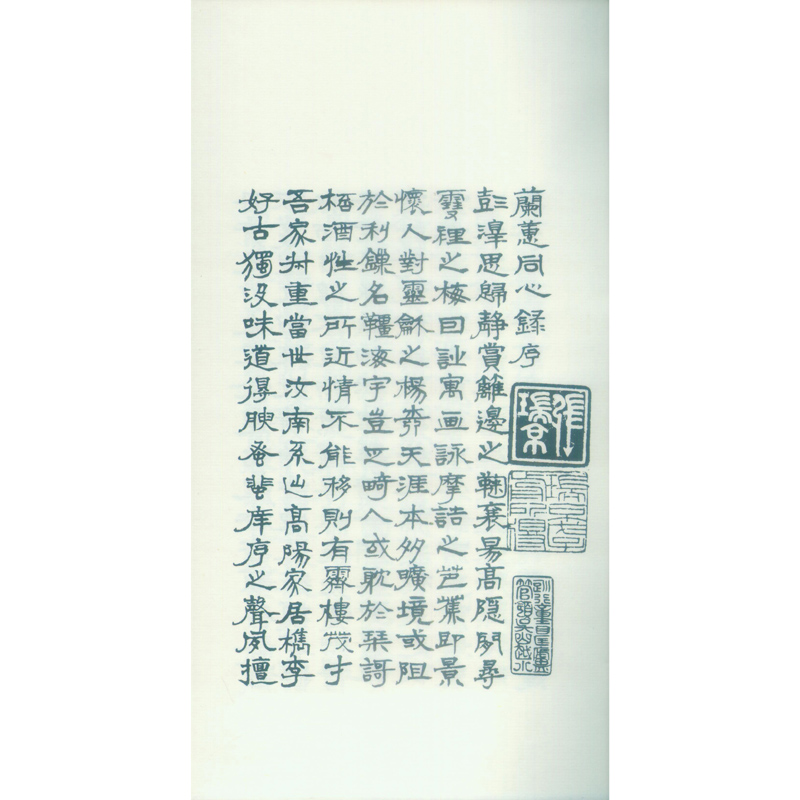 蘭蕙同心錄序
彭澤思歸靜賞籬邊之鞠襄昜高隱閒尋
雪裡之梅訫寓画詠摩詰之芭蕉即景
懷人對靈龢之楊桺天涯本多曠境或阻
於利鏁名韁海宇豈乏畸人或耽於琹謌
桮酒性之所近情不能移則有霽樓茂才
吾家尗重當世汝南系出高陽家居檇李
好古獨沒味道得腴蚤蜚庠序之聲夙擅
張瑞京